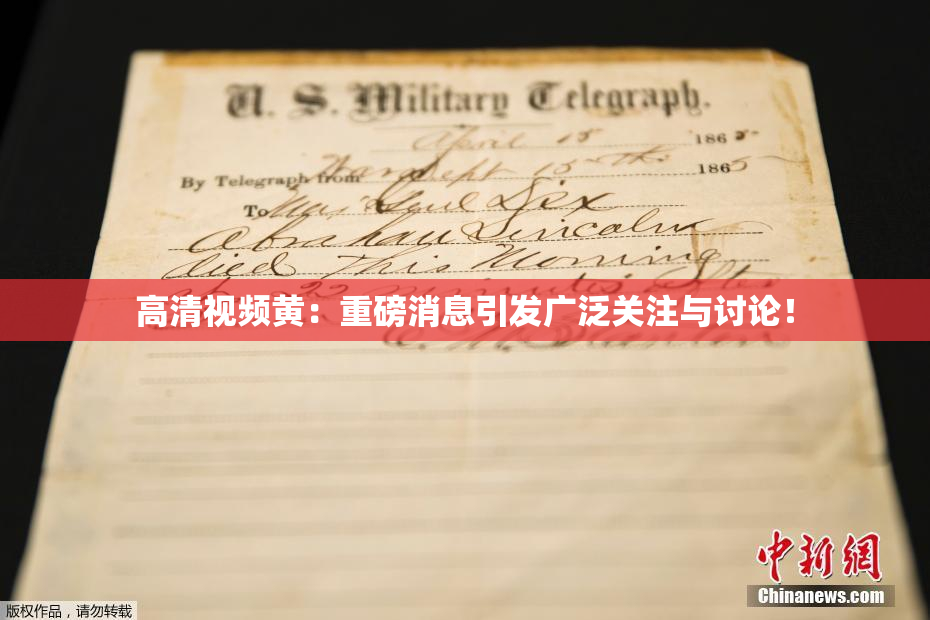 U. S. Military Telegraph.
April 15 1865
By Telegraph from War Dept 15th 1865
To Maj Genl Dix
Abraham Lincoln
died This Morning
at 22 minutes after
高清视频黄：重磅消息引发广泛关注与讨论！
E. M. Stanton
中新网
Chinanews.com
版权作品，请勿转载